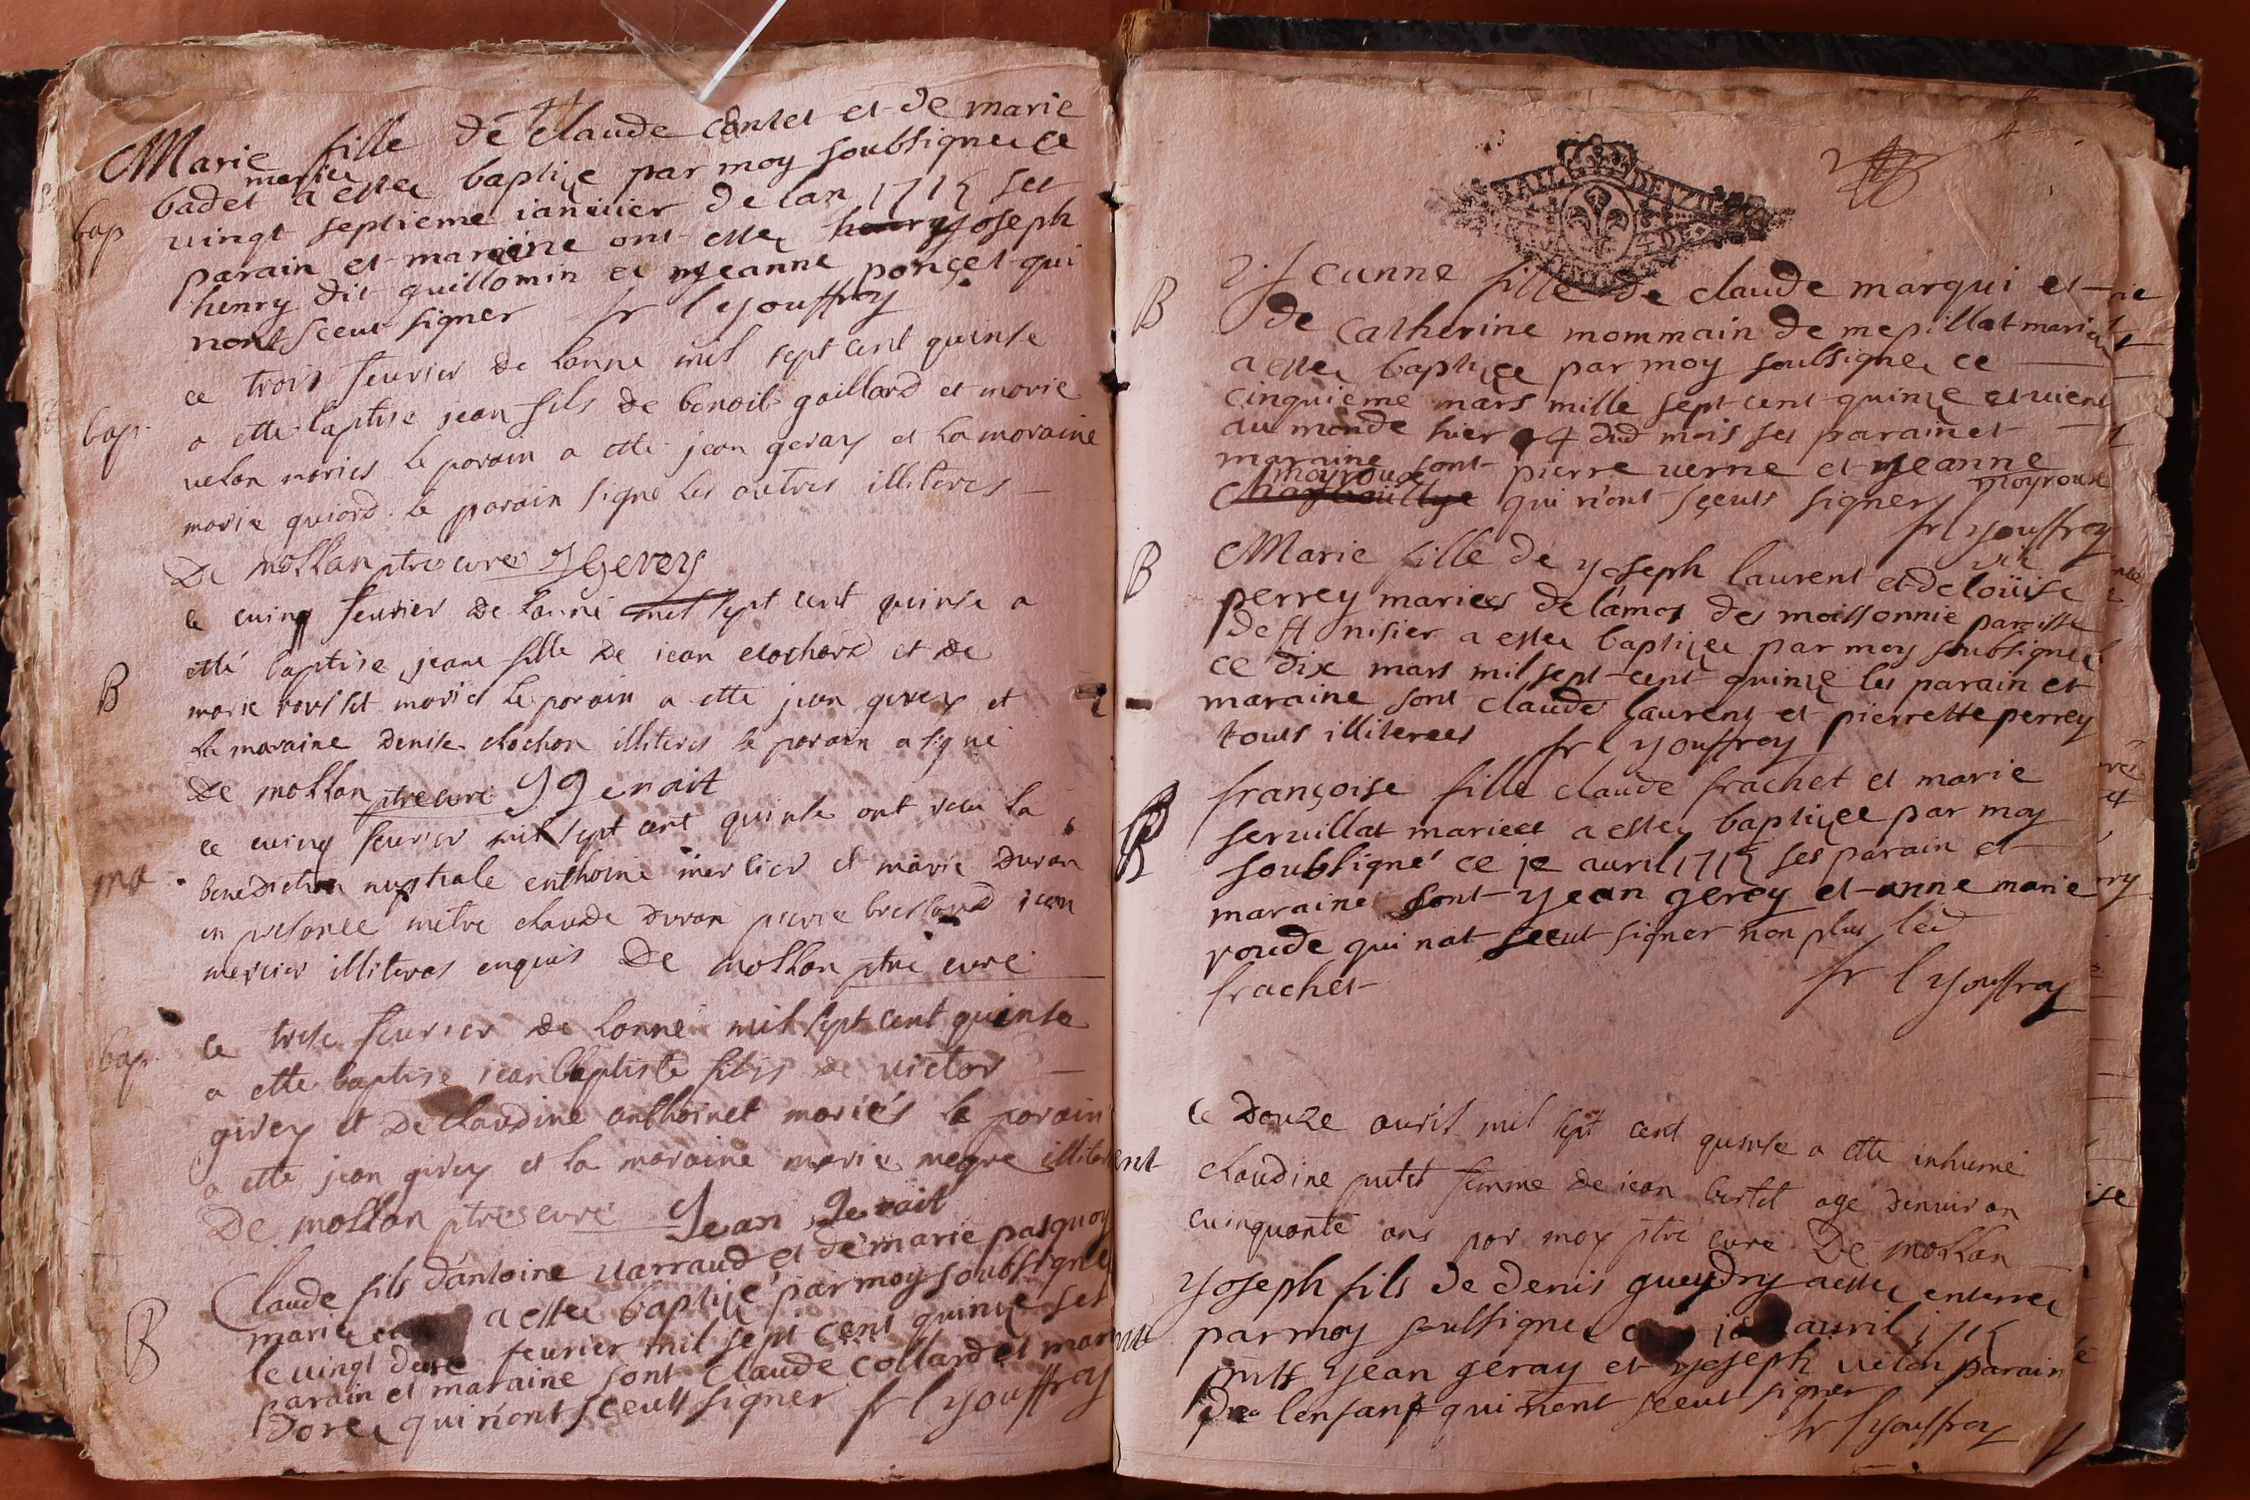 Marie fille de claude contet et de marie
badet mariee a estee baptizée par moy soubsignee ce
bap
vingt septieme ianuier de lan 1715 ses
parain et maraine ont estee joseph
henry dit guillomin et jeanne ponçet qui
nont sceut signer fr l youffroy
ce trois feurier de lanne mil sept cent quinse
bap.
a etté baptise jean fils de benoit gaillard et marie
velon maries le parain a etté jean geray et la maraine
marie quiard le parain signe les autres illiteres
De mollan ptre curé J Gerey
le cuinq feurier de lanné mil sept cent quinse a
etté baptise jeane fille de iean clochard et de
B
marie rousset maries le parain a etté jean girey et
la maraine denise clochon illiteres le parain a signé
De mollan ptre curé J gerait
ce cuinq feurier mil sept cent quinse ont receu la
ma
benediction nuptiale enthoine mercier et marie duran
en presence metre claude duran pierre iean
mercier illiteres enquis De mollan ptre curé
ce trese feurier de lanneé mil sept cent quinse
bap.
a etté baptise iean baptiste fils de victor
girey et de claudine anthoinet mariés le parain
a etté jean girey et la maraine marie megre
De mollan ptres curé Jean Gerait
Claude fils dantoine varraud et de marie pasquoy
mariee a estee baptizé par moy soubsigné
B
le vingt feurier mil sept cent quinze ses
parain et maraine sont claude collard et
doree qui n'ont sceut signer fr l youffroy
4
Jeanne fille de claude marqui et
B
de catherine mommain de mepillat mariee
a estee baptizee par moy soubsignee ce
cinquieme mars mille sept cent quinze et vient
au monde hier 4 dud mois ses parain et
maraine sont pierre verne et jeanne
moyroude
qui n'ont sçeuts signer moyroude
fr l youffroy
vic
B
Marie fille de yoseph laurent et de loüise
perrey mariees de lamas des moissonnie paroisse
de st nisier a estee baptizee par moy soubsigneé
ce dix mars mil sept cent quinze les parain et
maraine sont claude laurent et pierrette perrey
touts illiterees fr l youffroy
françoise fille claude frachet et marie
B
seruillat mariees a estee baptizee par moy
soubsigné ce ie auril 1715 ses parain et
maraine sont yean gerey et anne marie
roude qui nat sceut signer non plus led
frachet fr l youffroy
ce douze auril mil sept cent quinse a etté inhumé
ent
claudine putet femme de iean bertet age denuiron
cuinquante ans par moy ptre curé De mollan
yoseph fils de denis gueydry a estee enterree
par moy soubsignee auril 1715
yean geray et yoseph velon parain
de lenfant qui n'ont sceut signer
fr l youffroy